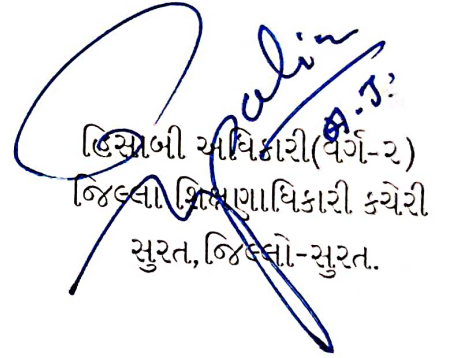 હિસાબી અધિકારી(વર્ગ-૨)
જિલ્લા શિક્ષણાધિકારી કચેરી
સુરત,જિલ્લો-સુરત.